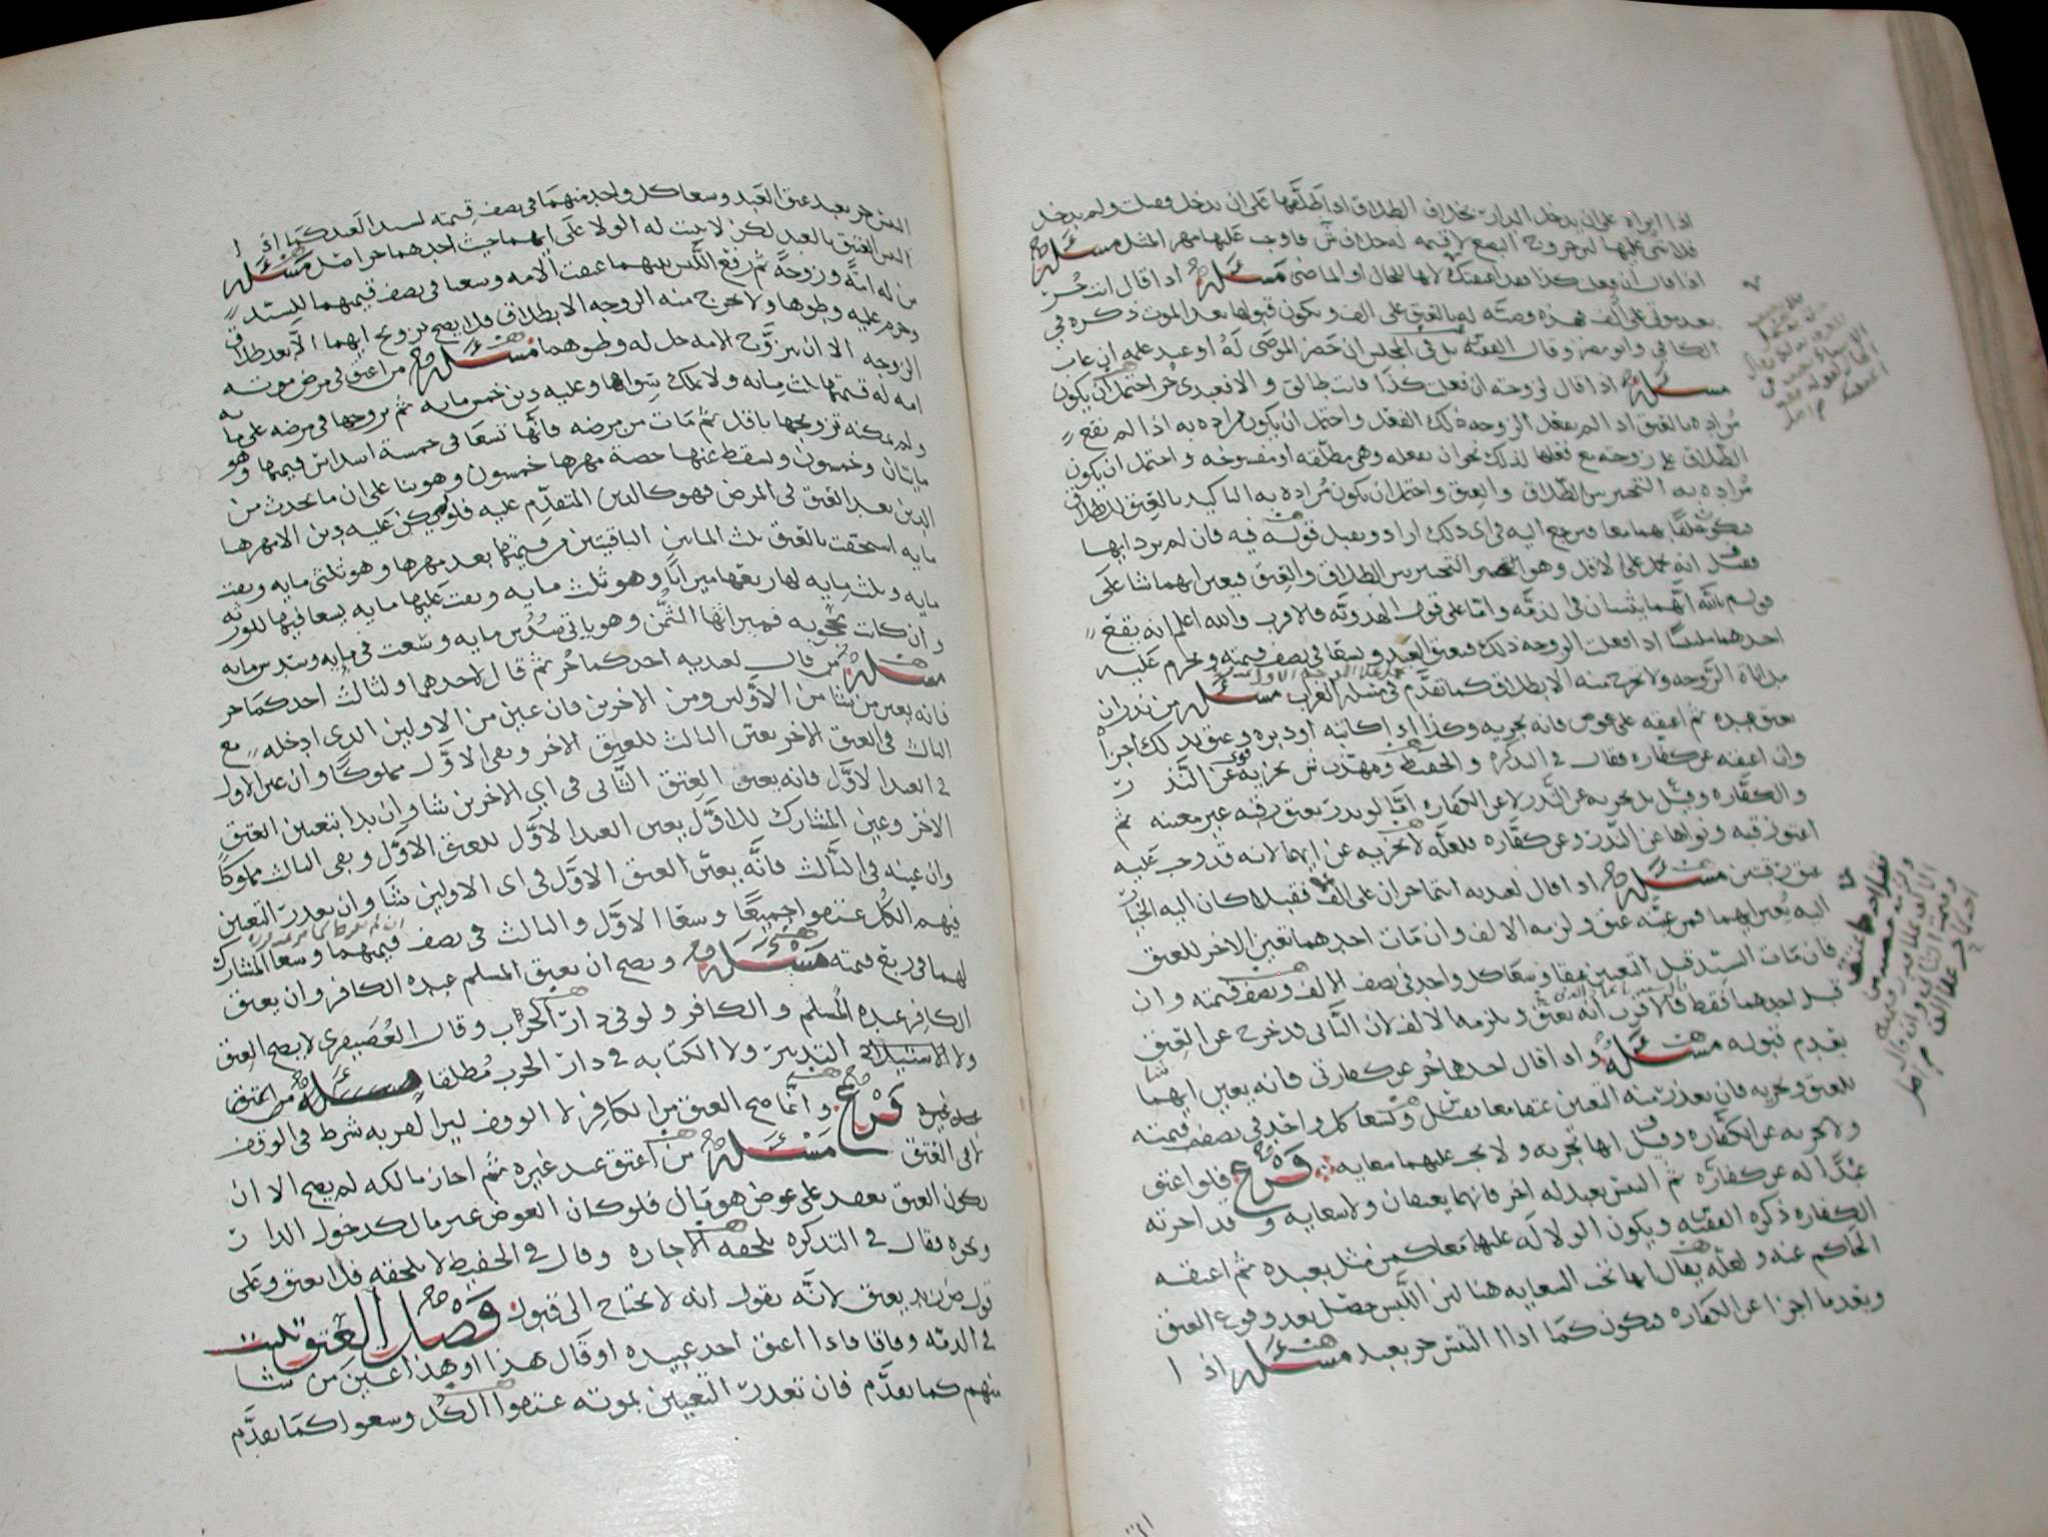 اذا ابراه على ان يدخل الدار بخلاف الطلاق اذا طلقها على ان يدخل فقبلت ولم يدخل
فلا شي عليها لان خروج البضع لا قيمه له فاوجب عليها مهر المثل مسئله
اذا قال ان فعل كذا فقد اعتقتك لانها للحال او الماضي مسئله اذا قال انت حر
بعد موتي على الف فهذه وصيه له بالعتق على الف ويكون قبولها بعد الموت ذكره في
الكافي وابو مضر وقال الفقيه بل في المجلس ان حضر الموصى له او عند علمه ان غاب
مسئله اذا قال لزوجته ان فعلت كذا فانت طالق والا فعبدي حر احتمل ان يكون
مراده بالعتق اذا لم يفعل الزوجه ذلك الفعل واحتمل ان يكون مراده به اذا لم يقع
الطلاق على زوجته مع فعلها لذلك نحو ان يفعله وهي مطلقه او مفسوخه واحتمل ان يكون
مراده به التخيير بين الطلاق والعتق واحتمل ان يكون مراده به التاكيد بالعتق للطلاق
فيكون حلفا بهما معا فيرجع اليه في اي ذلك اراد ويقبل قوله فيه فان لم يرد ايها
فقيل انه يحمل على الاقل وهو التخيير بين الطلاق والعتق فيعين ايهما شا على
قول م بالله انهما يثبتان في الذمه واما على قول الهدويه فالاقرب والله اعلم انه يقع
احدهما ملتبسا اذا فعلت الزوجه ذلك فيعتق العبد ويسعا في نصف قيمته ويحرم عليه
مداناة الزوجه ولا تخرج منه الا بطلاق كما تقدم في مسئله الغراب مسئله من نذر ان
يعتق عبده ثم اعتقه على عوض فانه يجزيه وكذا اذا كاتبه او دبره وعتق بذلك اجزا
وان اعتقه عن كفاره فقال في التذكره والحفيظ يجزيه عن النذر
والكفاره وقيل بل يجزيه عن النذر لا عن الكفاره اما لو نذر بعتق رقبه غير معينه ثم
اعتق رقبه ونواها عن النذر وعن كفاره فلعله لا يجزيه عن ايهما لانه قد وجب عليه
عتق رقبتين مسئله اذا قال لعبديه انتما حران على الف فقبلا كان اليه الخيار
اليه يعين ايهما فمن عينه عتق ولزمه الالف وان مات احدهما تعين الاخر للعتق
فان مات السيد قبل التعيين عتقا وسعا كل واحد في نصف الالف ونصف قيمته وان
قبل احدهما فقط فالاقرب انه يعتق ويلزمه الالف لان الثاني قد خرج عن العتق
بعدم قبوله مسئله واذا قال احدهما حر عن كفارتي فانه يعين ايهما شا
للعتق ويجزيه فان تعذر منه التعيين عتقا معا فقيل وسعا كل واحد في نصف قيمته
ولا يجزيه عن الكفاره وقيل انها تجزيه ولا يجب عليهما سعايه فرع فلو اعتق
عبدا له عن كفاره ثم التبس بعبد له اخر فانهما يعتقان ولا سعايه وقد اجزته
الكفاره ذكره الفقيه ويكون الولا له عليهما معا كمن مثل بعبده ثم اعتقه
الحاكم عنه ولعله يقال انها تجب السعايه هنا لان اللبس حصل بعد وقوع العتق
وبعد ما اجزا عن الكفاره فيكون كما اذا التبس حر بعبد مسئله اذا
التبس حر بعبد عتق العبد وسعا كل واحد منهما في نصف قيمته لسيد العبد كما اذا
التبس العتيق بالعبد لكن لا يثبت له الولا على ايهما حيث احدهما حر اصل مسئله
من له امة وزوجة ثم وقع اللبس بينهما عتقت الامه وسعا في نصف قيمتهما للسيد
وحرم عليه وطوها ولا تخرج منه الزوجه الا بطلاق فلا يصح تزويج ايهما الا بعد طلاق
الزوجه الا ان يتزوج الامه حل له وطوهما مسئله من اعتق في مرض موته
امه له قيمتها ثلث مايه ولا يملك سواها وعليه دين خمس مايه ثم تزوجها في مرضه على مايه
ولم يمكنه تزويجها باقل ثم مات من مرضه فانها تسعا في خمسة اسداس قيمتها وهو
مايتان وخمسون ويسقط عنها حصة مهرها خمسون وهو بنا على ان ما يحدث من
الدين بعد العتق في المرض فهو كالدين المتقدم عليه فلو لم يكن عليه دين الا مهرها
مايه استحقت بالعتق ثلث المايتين الباقيتين من قيمتها بعد مهرها وهو ثلثي مايه وبقت
مايه وثلث مايه لها ربعها ميراثا وهو ثلث مايه وبقت عليها مايه يسعا فيها للورثه
وان كانت محجوبه فميراثها الثمن وهو ياتي سدس مايه وسعت في مايه وسدس مايه
مسئله من قال لعبديه احدكما حر ثم قال لاحدهما ولثالث احدكما حر
فانه يعين من شا من الاولين ومن الاخرين فان عين من الاولين الذي ادخله مع
الثالث في العتق الاخر تعين الثالث للعتق الاخر وبقى الاول مملوكا وان عين الاول
في العبد الاول فانه يعين العتق الثاني في اي الاخرين شا وان بدا بتعيين العتق
الاخر وعين المشارك للاول تعين العبد الاول للعتق الاول وبقى الثالث مملوكا
وان عينه في الثالث فانه يعين العتق الاول في اي الاولين شا وان تعذر التعيين
فيهم الكل عتقوا جميعا وسعا الاول والثالث في نصف قيمتهما وسعا المشارك
لهما في ربع قيمته مسئله ويصح ان يعتق المسلم عبده الكافر وان يعتق
الكافر عبده المسلم والكافر ولو في دار الحرب وقال العصيفري لا يصح العتق
ولا الاستيلاد التدبير ولا الكتابه في دار الحرب مطلقا مسئله من اعتق
عبد غيره فرع وانما صح العتق من الكافر لا الوقف لان القربه شرط في الوقف
لا في العتق مسئله من اعتق عبد غيره ثم اجاز مالكه لم يصح الا ان
يكون العتق بعقد على عوض هو مال فلو كان العوض غير مال كدخول الدار
ونحوه فقال في التذكره تلحقه الاجازه وقال في الحفيظ لا تلحقه فلا يعتق وعلى
قول يعتق لانه يقول انه لا يحتاج الى قبول فصل العتق يثبت
في الذمه وفاقا فاذا اعتق احد عبيده او قال هذا او هذا عين من شا
منهم كما تقدم فان تعذر التعيين بموته عتقوا الكل وسعوا كما تقدم